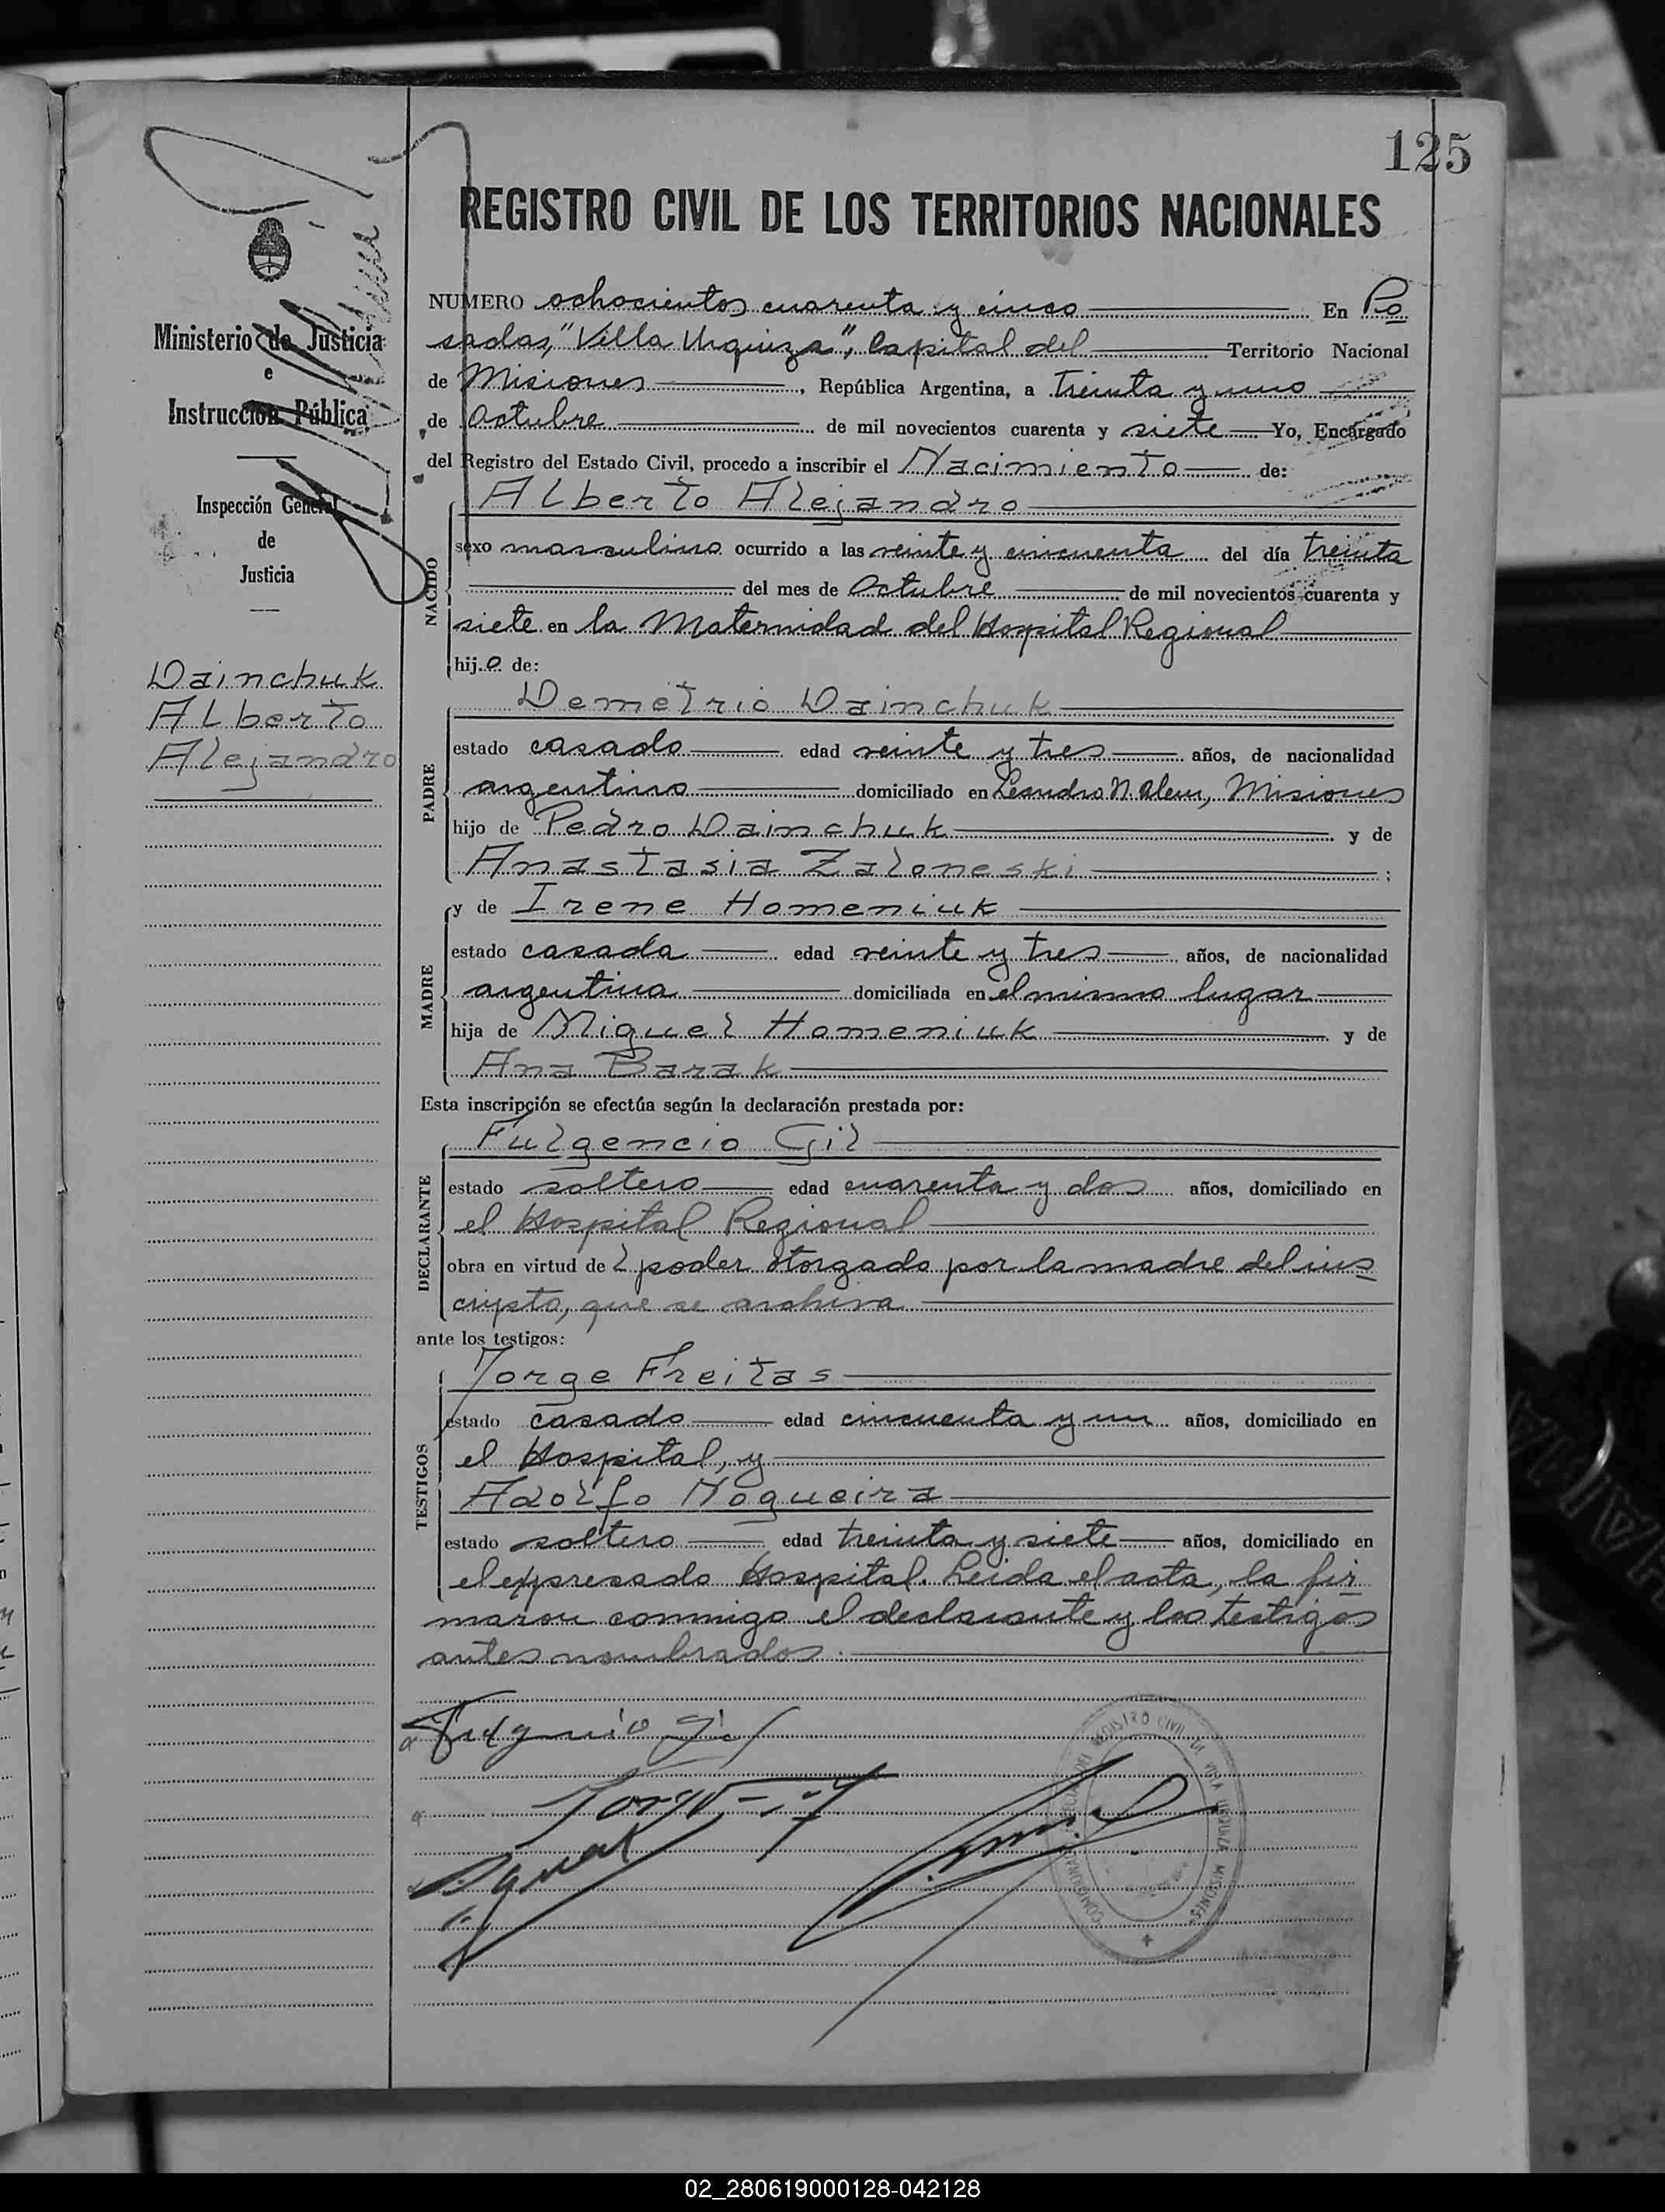 125
REGISTRO CIVIL DE LOS TERRITORIOS NACIONALES
Ministerio de Justicia
e
Instrucción Pública
Inspección General
de
Justicia
Dainchuk
Alberto
Alejandro
NUMERO ochocientos cuarenta y cinco En Po
sadas, "Villa Urquiza", Capital del Territorio Nacional
de Misiones, República Argentina, a treinta y uno
de Octubre de mil novecientos cuarenta y siete Yo, Encargado
del Registro del Estado Civil, procedo a inscribir el Nacimiento de:
NACIDO
Alberto Alejandro
sexo masculino ocurrido a las veinte y cincuenta del día treinta
del mes de Octubre de mil novecientos cuarenta y
siete en la Maternidad del Hospital Regional
hijo de:
PADRE
Demetrio Dainchuk
estado casado edad veinte y tres años, de nacionalidad
argentino domiciliado en Leandro N. Alem, Misiones
hijo de Pedro Dainchuk y de
Anastasia Zaloneski;
MADRE
y de Irene Homeniuk
estado casada edad veinte y tres años, de nacionalidad
argentina domiciliada en el mismo lugar
hija de Miguel Homeniuk y de
Ana Barak
Esta inscripción se efectúa según la declaración prestada por:
DECLARANTE
Fulgencio Gil
estado soltero edad cuarenta y dos años, domiciliado en
el Hospital Regional
obra en virtud del poder otorgado por la madre del ins
cripto, que se archiva
ante los testigos:
TESTIGOS
Jorge Freitas
estado casado edad cincuenta y un años, domiciliado en
el Hospital, y
Adolfo Nogueira
estado soltero edad treinta y siete años, domiciliado en
el expresado Hospital. Leida el acta, la fir
maron conmigo el declarante y los testigos
antes nombrados.
Fulgencio Gil
REGISTRO CIVIL VILLA URQUIZA MISIONES
02_280619000128-042128